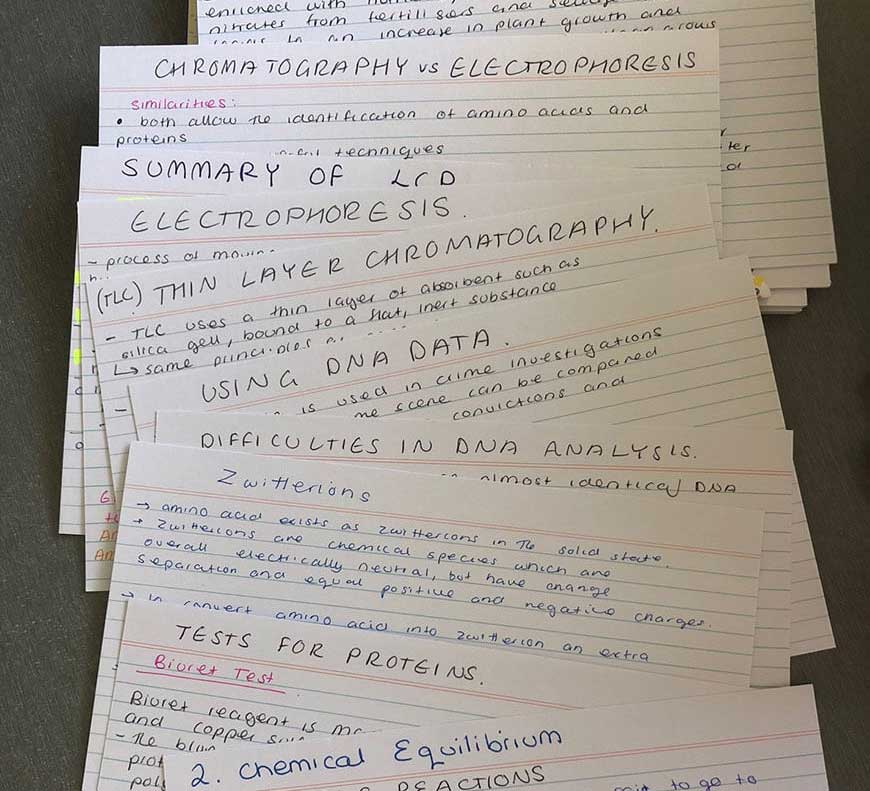 enriched with
nitrates from fertilisers and
in an increase in plant growth and
CHROMATOGRAPHY vs ELECTROPHORESIS
Similarities:
• both allow the identification of amino acids and
proteins
techniques
ter
SUMMARY OF LCD
ELECTROPHORESIS.
- process of
(TLC) THIN LAYER CHROMATOGRAPHY.
- TLC uses a thin layer of absorbent such as
silica gell, bound to a flat, inert substance
↳ same principles
USING DNA DATA.
is used in crime investigations
scene can be compared
convictions and
DIFFICULTIES IN DNA ANALYSIS.
almost identical DNA
Zwitterions
→ amino acid exists as zwittercons in the solid state.
→ Zwittercons are chemical species which are
overall electrically neutral, but have change
separation and equal positive and negative charges.
→ convert amino acid into zwitterion an extra
TESTS FOR PROTEINS.
Bioret Test
Bioret reagent is
and copper
- The
prot
2. Chemical Equilibrium
REACTIONS
to go to